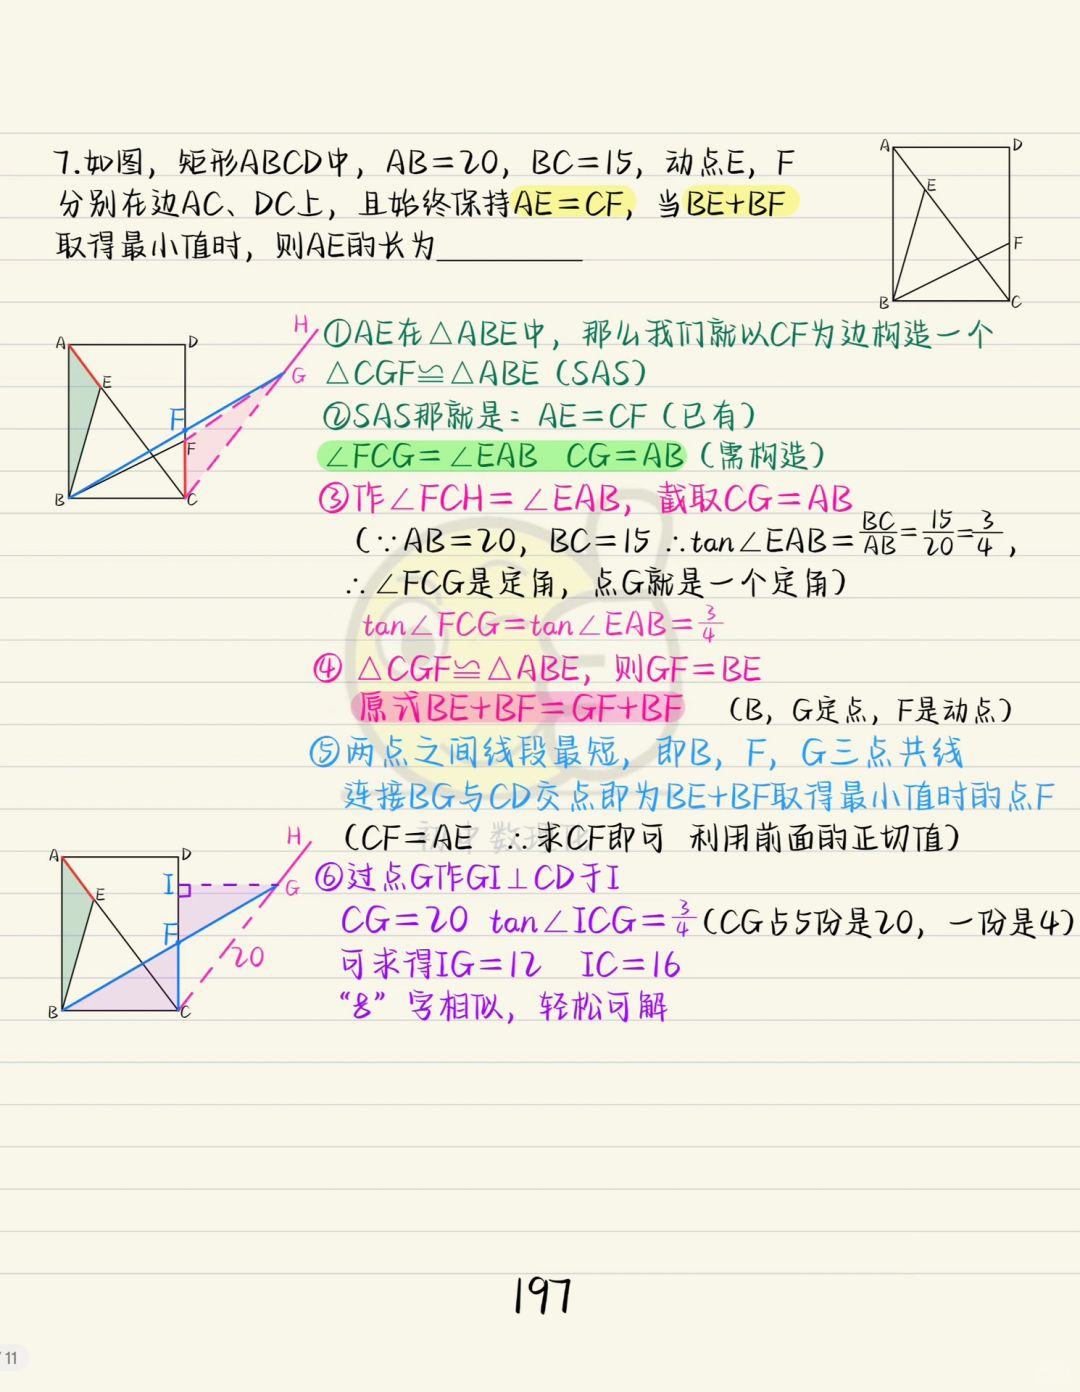 7.如图，矩形ABCD中，AB=20，BC=15，动点E，F
分别在边AC、DC上，且始终保持AE=CF，当BE+BF
取得最小值时，则AE的长为__________
A
D
E
F
B
C
A
D
E
F
F
B
C
H
G
①AE在△ABE中，那么我们就以CF为边构造一个
△CGF≌△ABE（SAS）
②SAS那就是：AE=CF（已有）
∠FCG=∠EAB CG=AB（需构造）
③作∠FCH=∠EAB，截取CG=AB
（∵AB=20，BC=15 ∴tan∠EAB=BC/AB=15/20=3/4，
∴∠FCG是定角，点G就是一个定角）
tan∠FCG=tan∠EAB=3/4
④ △CGF≌△ABE，则GF=BE
原式BE+BF=GF+BF （B，G定点，F是动点）
⑤两点之间线段最短，即B，F，G三点共线
连接BG与CD交点即为BE+BF取得最小值时的点F
（CF=AE ∴求CF即可 利用前面的正切值）
A
D
I
E
F
B
C
H
G
20
⑥过点G作GI⊥CD于I
CG=20 tan∠ICG=3/4（CG占5份是20，一份是4）
可求得IG=12 IC=16
“8”字相似，轻松可解
初中数理化
197
/11